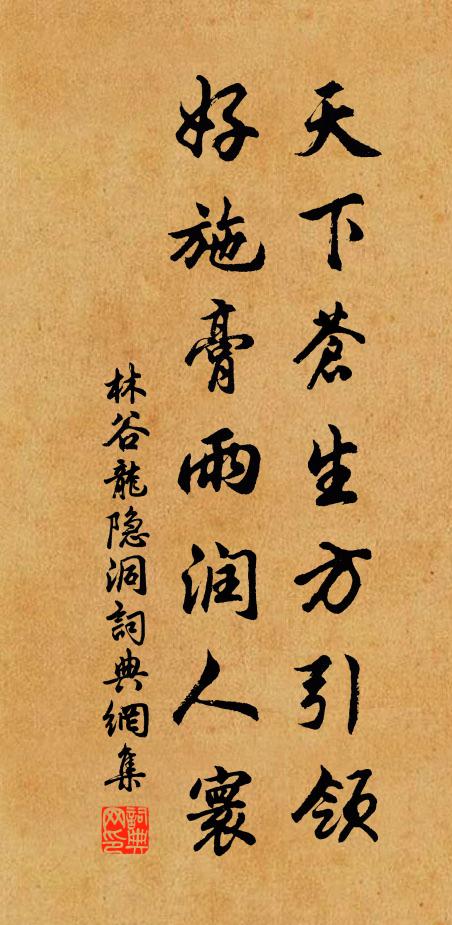 天下蒼生方引領
好施膏雨润人寰
林谷龍隐洞詞典網集
詞典网印